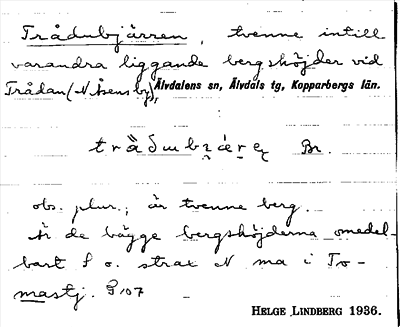 Trådubjärren, tvenne intill
varandra liggande bergshöjder vid
Trådan (N Åsens by), Älvdalens sn, Älvdals tg, Kopparbergs län.
Br.
obs. plur.; är tvenne berg
Är de bägge bergshöjderna omedel-
bart S o. strax N ma i To-
mastj. G 107
HELGE LINDBERG 1936.